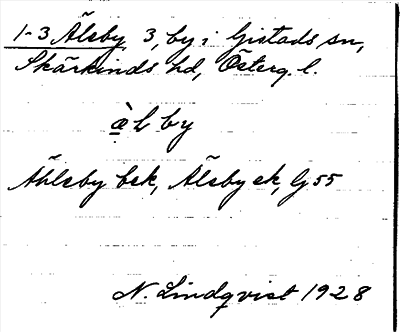 1-3 Älsby 3, by i Gistads sn,
Skärkinds hd, Österg. l.
æ̀l by
Åhlsby bek, Älsby ek, G 55
N. Lindqvist 1928